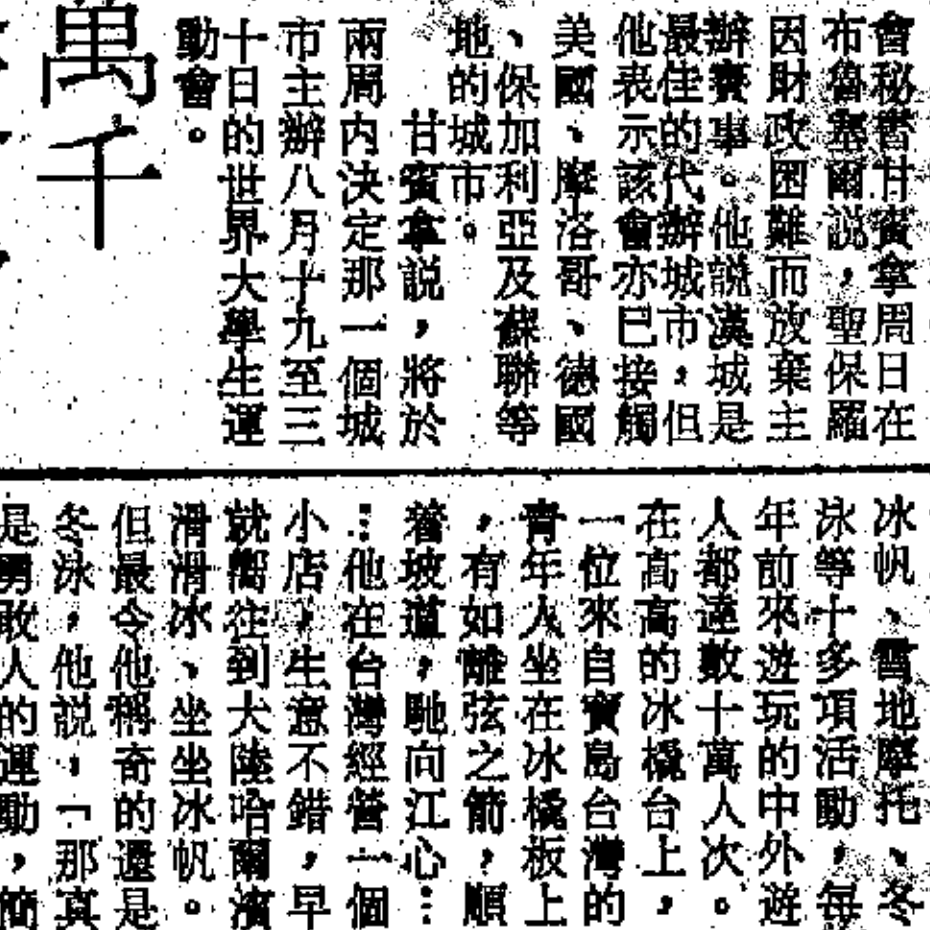 會秘書甘賓拿周日在
布魯塞爾説，聖保羅
因財政困難而放棄主
辦賽事。他説漢城是
最佳的代辦城市，但
他表示該會亦已接觸
美國、摩洛哥、德國
、保加利亞及蘇聯等
地的城市。
甘賓拿説，將於
兩周内決定那一個城
市主辦八月十九至三
十日的世界大學生運
動會。
萬千
冰帆、雪地摩托、冬
泳等十多項活動，每
年前來遊玩的中外遊
人都達數十萬人次。
在高高的冰橇台上，
一位來自寶島台灣的
青年人坐在冰橇板上
，有如離弦之箭，順
着坡道，馳向江心…
…他在台灣經營一個
小店，生意不錯，早
就嚮往到大陸哈爾濱
滑滑冰、坐坐冰帆。
但最令他稱奇的還是
冬泳，他説：「那真
是勇敢人的運動，簡